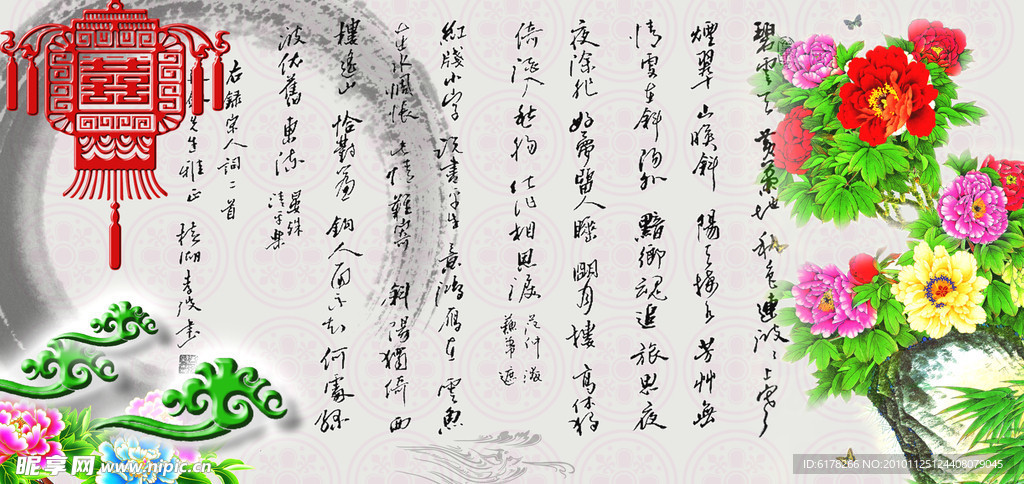 碧雲天黃葉地秋色連波波上寒
煙翠山映斜陽天接水芳艸無
情更在斜陽外黯鄉魂追旅思夜
夜除非好夢留人睡明月樓高休獨
倚酒入愁腸化作相思淚
范仲淹
蘇幕遮
紅牋小字說盡平生意鴻雁在雲魚
在水惆悵此情難寄斜陽獨倚西
樓遙山恰對簾鉤人面不知何處綠
波依舊東流
晏殊
清平樂
右録宋人詞二首
先生雅正
囍
昵享网 www.nipic.cn
ID:6178266 NO:20101125124408079045